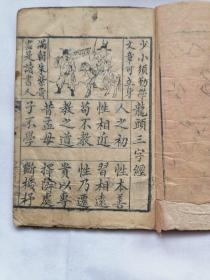 少小須勤學
文章可立身
滿朝朱紫貴
盡是讀書人
龍頭三字經
人之初 性本善
性相近 習相遠
苟不教 性乃遷
教之道 貴以專
昔孟母 擇鄰處
子不學 斷機杼